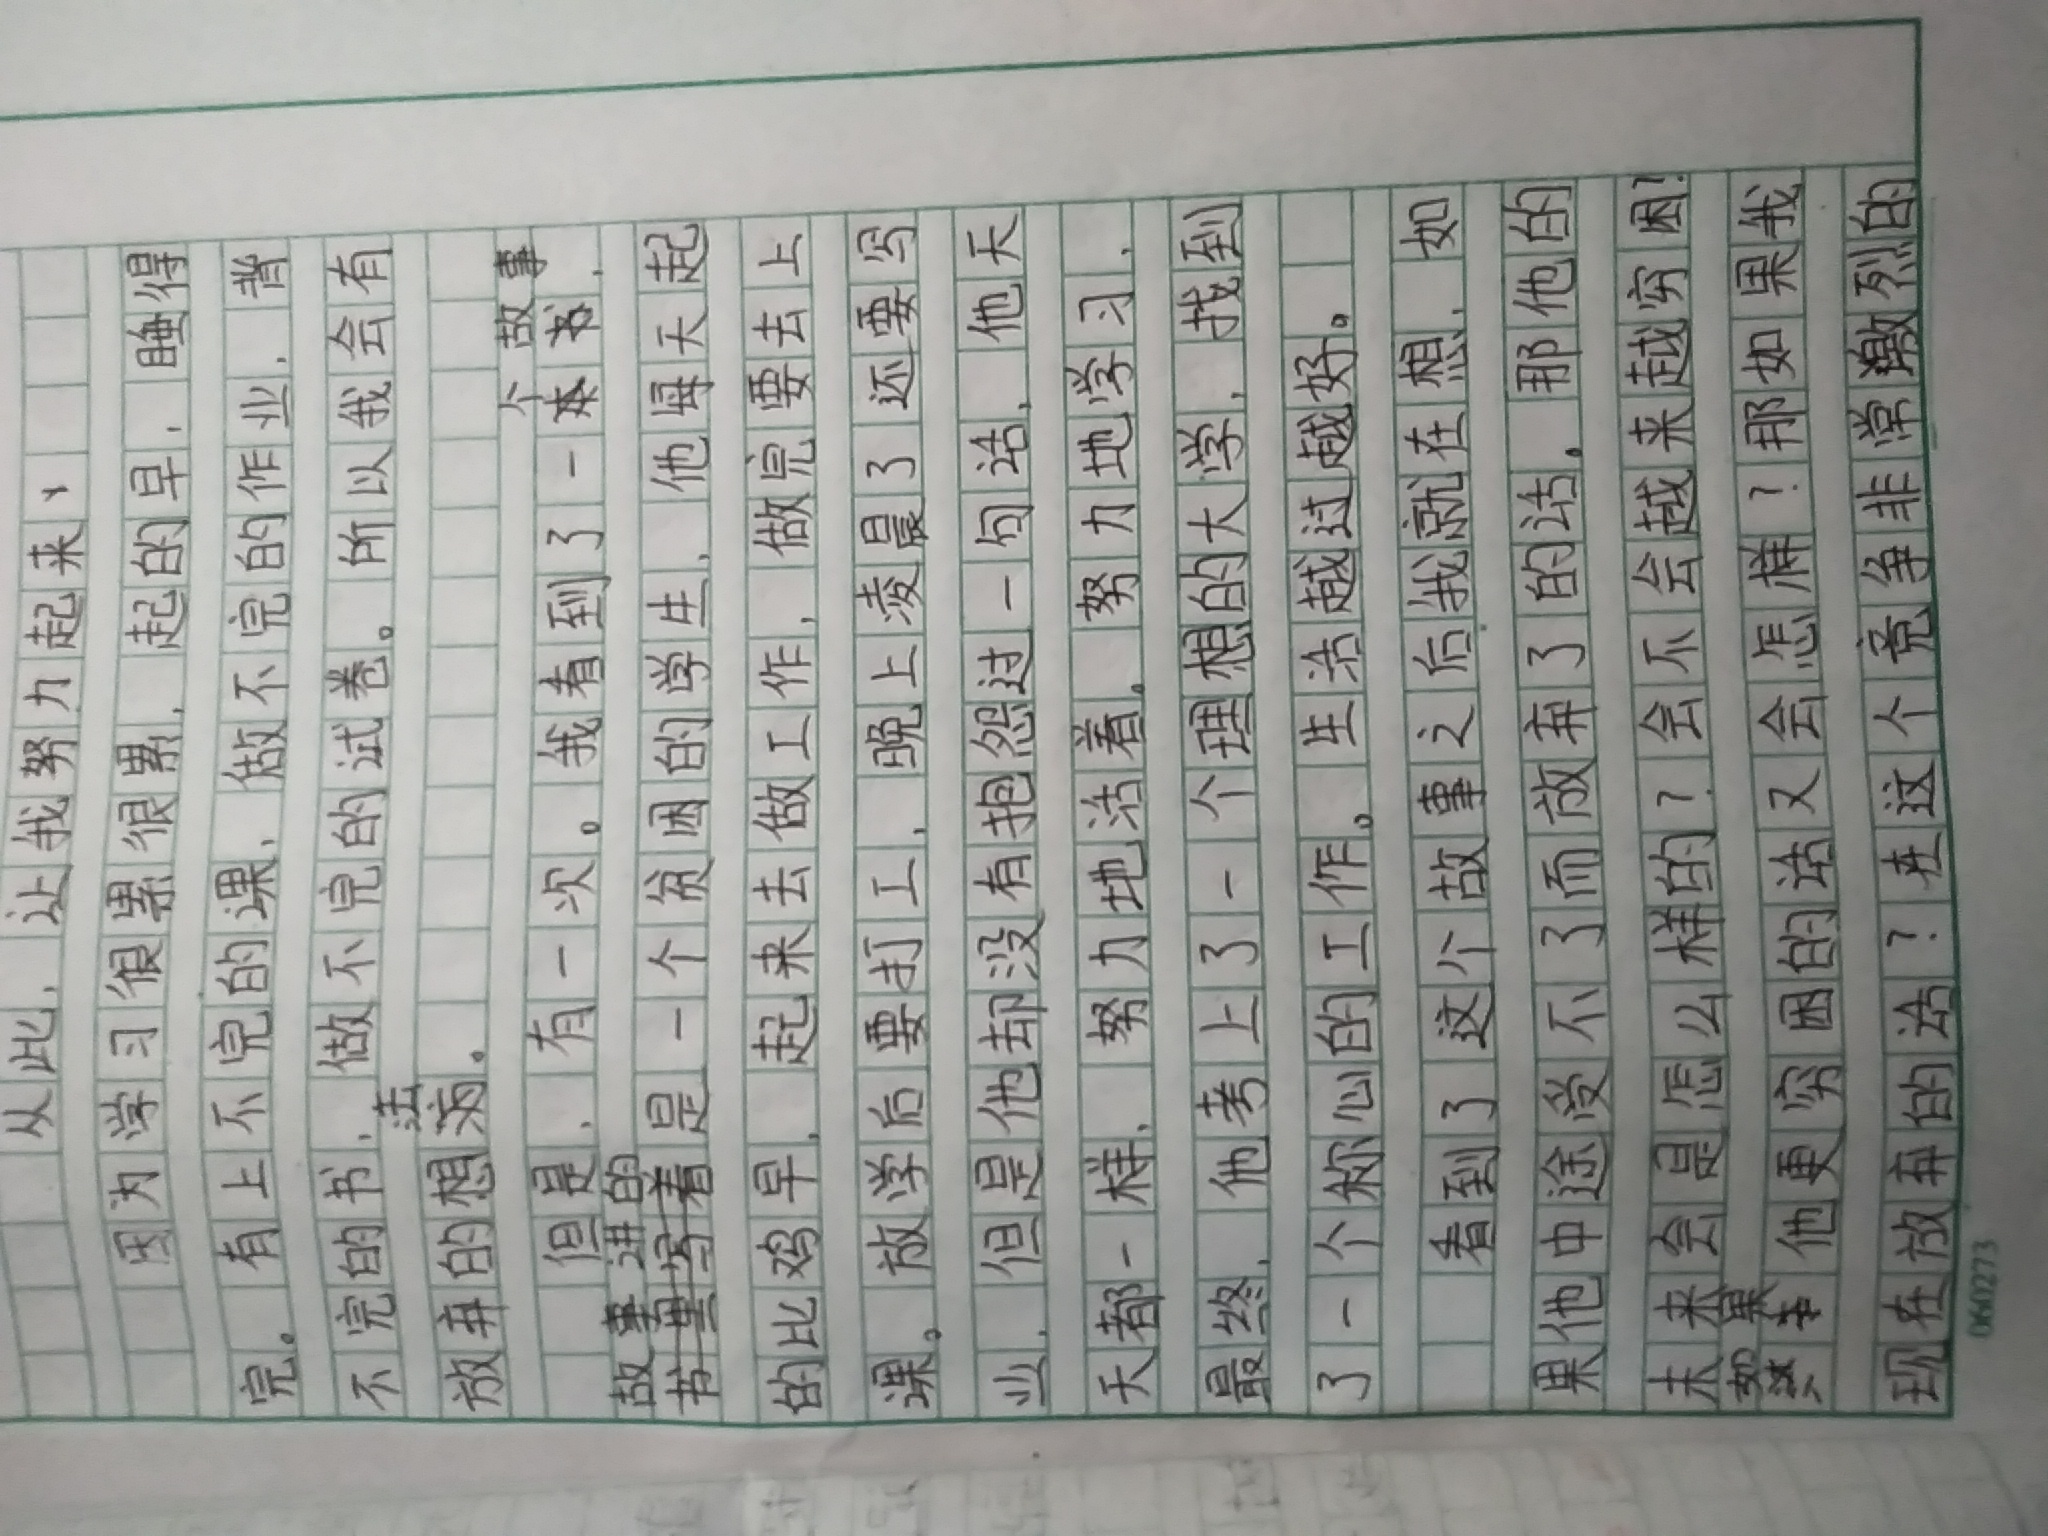 从此，让我努力起来、
因为学习很累很累，起的早，睡得
完。有上不完的课，做不完的作业，背
不完的书，做不完的试卷。所以我会有
放弃的想法。
但是，有一次。我看到了一个故事，
故事讲的是一个贫困的学生，他每天起
的比鸡早，起来去做工作，做完要去上
课。放学后要打工，晚上凌晨了还要写
业，但是他却没有抱怨过一句话，他天
天都一样，努力地活着。努力地学习，
最终，他考上了一个理想的大学，找到
了一个称心的工作。生活越过越好。
看到了这个故事之后我就在想，如
果他中途受不了而放弃了的话，那他的
未来会是怎么样的？会不会越来越穷困？
如果他更穷困的话又会怎样？那如果我
现在放弃的话？在这个竞争非常激烈的
060273